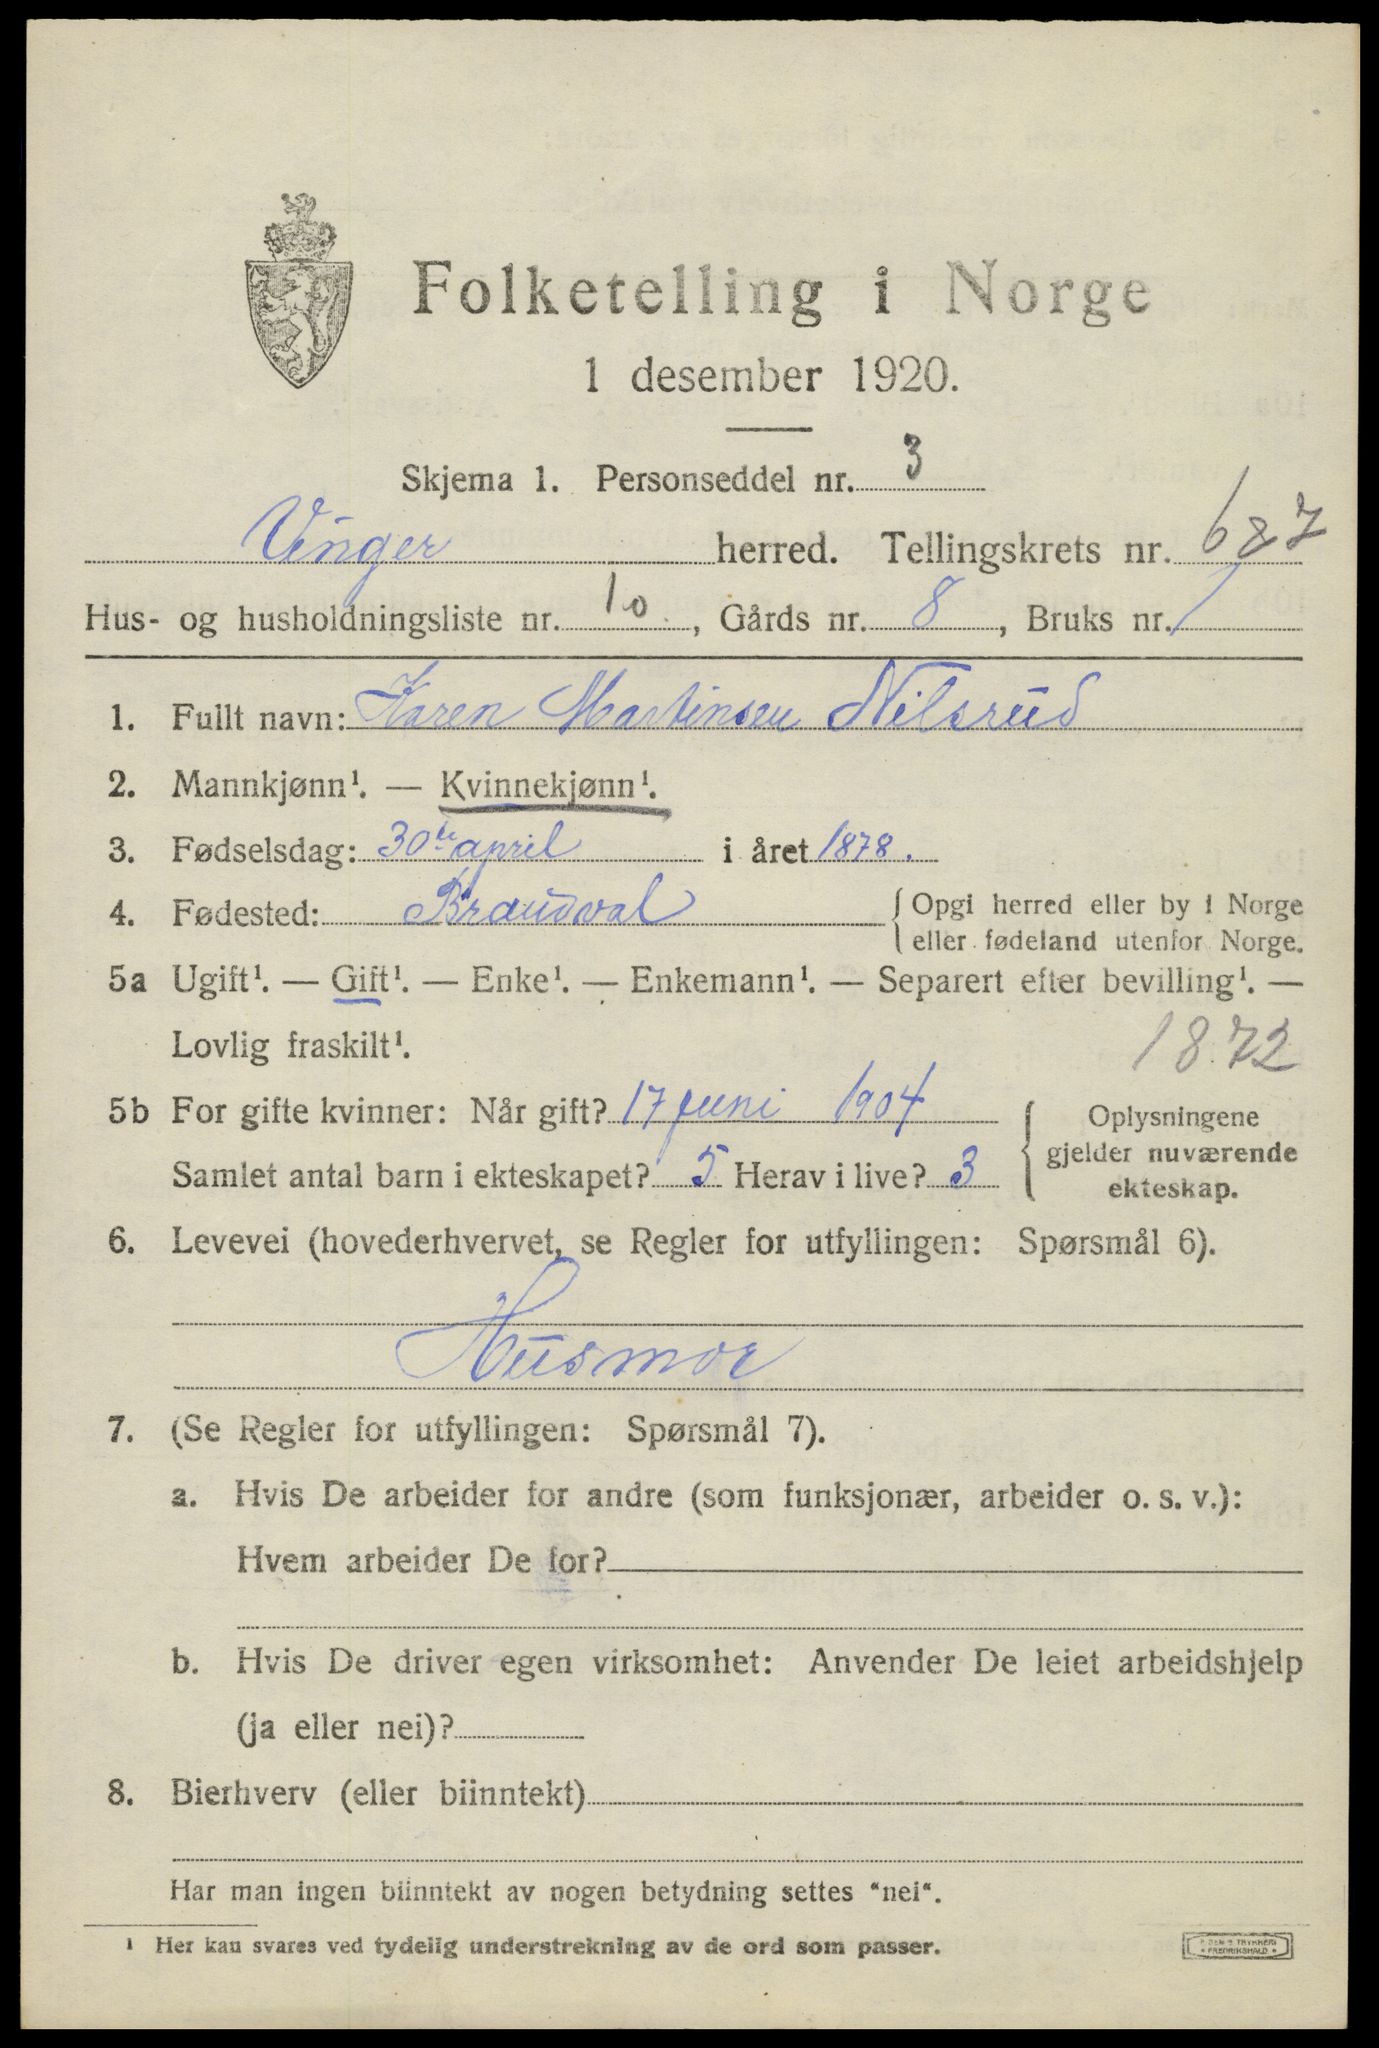 Folketelling i Norge
1 desember 1920.
Skjema 1. Personseddel nr. 3
Vinger herred. Tellingskrets nr. 6 & 7
Hus- og husholdningsliste nr. 10, Gårds nr. 8, Bruks nr. 1
1. Fullt navn: Karen Martinsen Nilsrud
2. Mannkjønn¹. — Kvinnekjønn¹.
3. Fødselsdag: 30te april i året 1878.
4. Fødested: Brandval { Opgi herred eller by i Norge
eller fødeland utenfor Norge.
5a Ugift¹. — Gift¹. — Enke¹. — Enkemann¹. — Separert efter bevilling¹. —
Lovlig fraskilt¹. 1872
5b For gifte kvinner: Når gift? 17 juni 1904
Samlet antal barn i ekteskapet? 5 Herav i live? 3
{ Oplysningene
gjelder nuværende
ekteskap.
6. Levevei (hovederhvervet, se Regler for utfyllingen: Spørsmål 6).
Husmor
7. (Se Regler for utfyllingen: Spørsmål 7).
a. Hvis De arbeider for andre (som funksjonær, arbeider o. s. v.):
Hvem arbeider De for?
b. Hvis De driver egen virksomhet: Anvender De leiet arbeidshjelp
(ja eller nei)?
8. Bierhverv (eller biinntekt)
Har man ingen biinntekt av nogen betydning settes "nei".
¹ Her kan svares ved tydelig understrekning av de ord som passer.
TRYKKERI
FREDRIKSHALD